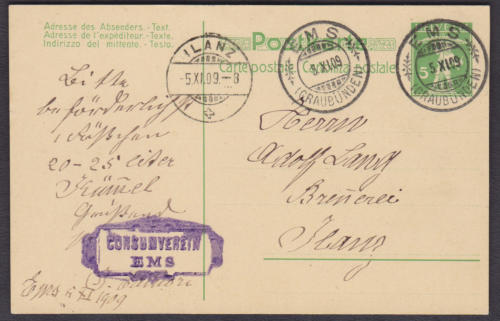 Adresse des Absenders. - Text.
Adresse de l'expéditeur. - Texte.
Indirizzo del mittente. - Testo.
Postkarte
Carte postale. Cartolina postale.
ILANZ
-5.XI.09.-8
EMS
5.XI.09
(GRAUBÜNDEN)
EMS
5.XI.09
(GRAUBÜNDEN)
5
Bitte
beförderlichst
1 Fässchen
20-25 liter
Kümmel
Grüssend
CONSUMVEREIN
EMS
Ems 5 XI 1909
Herrn
Adolf
Brennerei
Ilanz